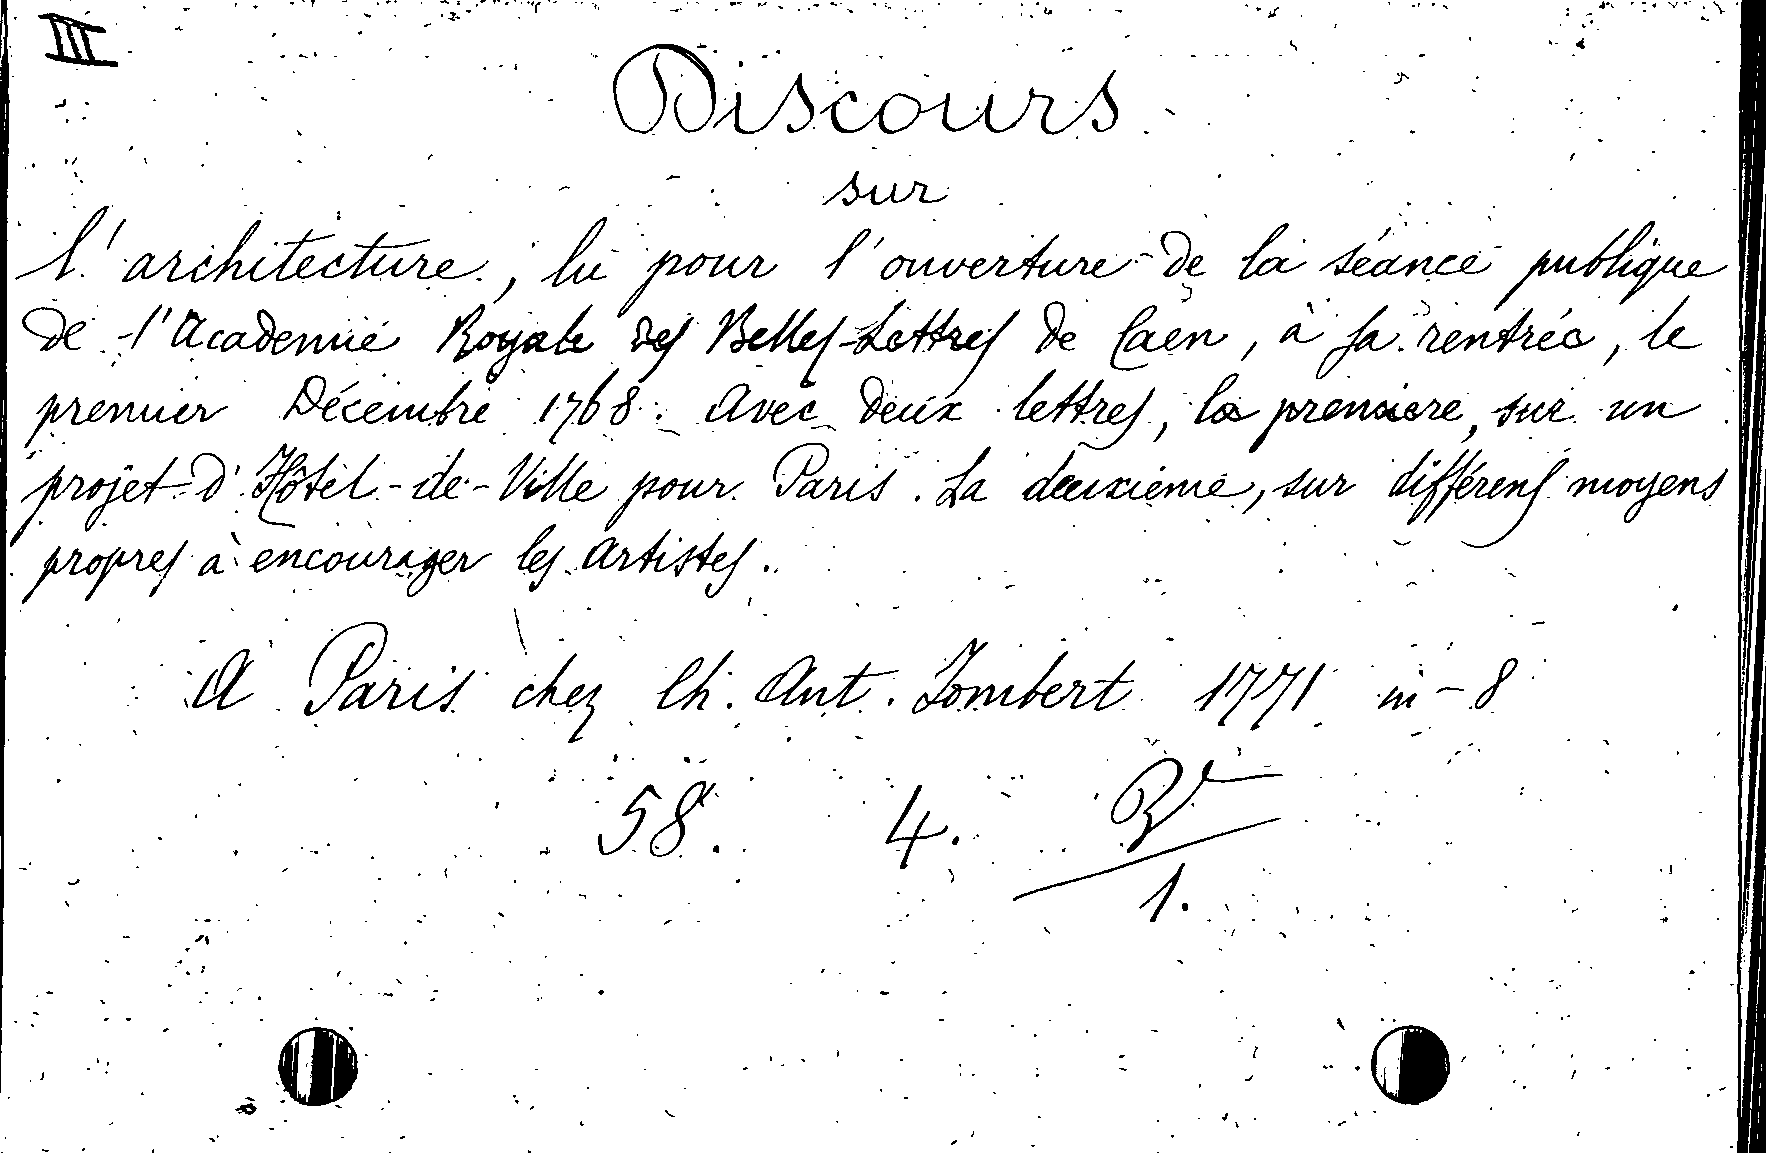 III
Discours
sur
l'architecture, lu pour l'ouverture de la séance publique
de l'Academie Royale des Belles-Lettres de Caen, à sa rentrée, le
premier Décembre 1768. Avec deux lettres, la premiere, sur un
projet d'Hôtel-de-Ville pour Paris. La deuxieme, sur différens moyens
propres à encourager les artistes.
A Paris chez Ch. Ant. Jombert 1771 in-8
58. 4.
1.